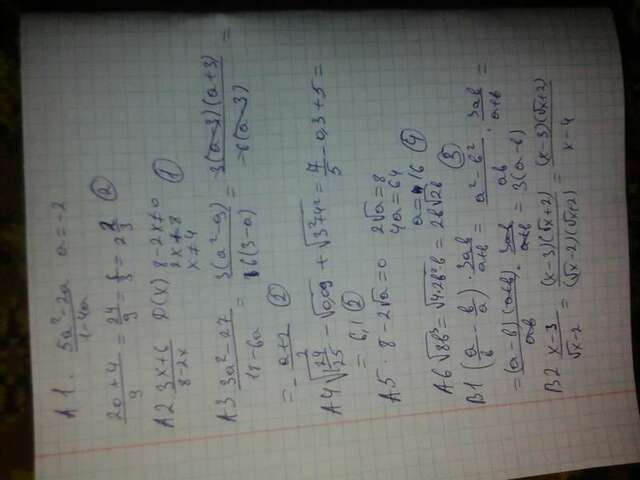 A1. (5a²-2a)/(1-4a) a=-2
(20+4)/9 = 24/9 = 8/3 = 2 2/3 ②
A2 (3x+6)/(8-2x) D(x) 8-2x≠0
2x≠8
x≠4 ①
A3 (3a²-27)/(18-6a) = 3(a²-9)/6(3-a) = 3(a-3)(a+3)/-6(a-3) =
= -(a+3)/2 ②
A4 √(1 24/25) - √0,09 + √(3²+4²) = 7/5 - 0,3 + 5 =
= 6,1 ②
A5. 8-2√a=0 2√a=8
4a=64
a=16 ④
A6 √8b³ = √4·2b²b = 2b√2b ③
B1 (a/b - b/a) · 3ab/(a+b) = (a²-b²)/ab · 3ab/(a+b) =
= (a-b)(a+b)/ab · 3ab/(a+b) = 3(a-b)
B2 (x-3)/(√x-2) = (x-3)(√x+2)/(√x-2)(√x+2) = (x-3)(√x+2)/(x-4)